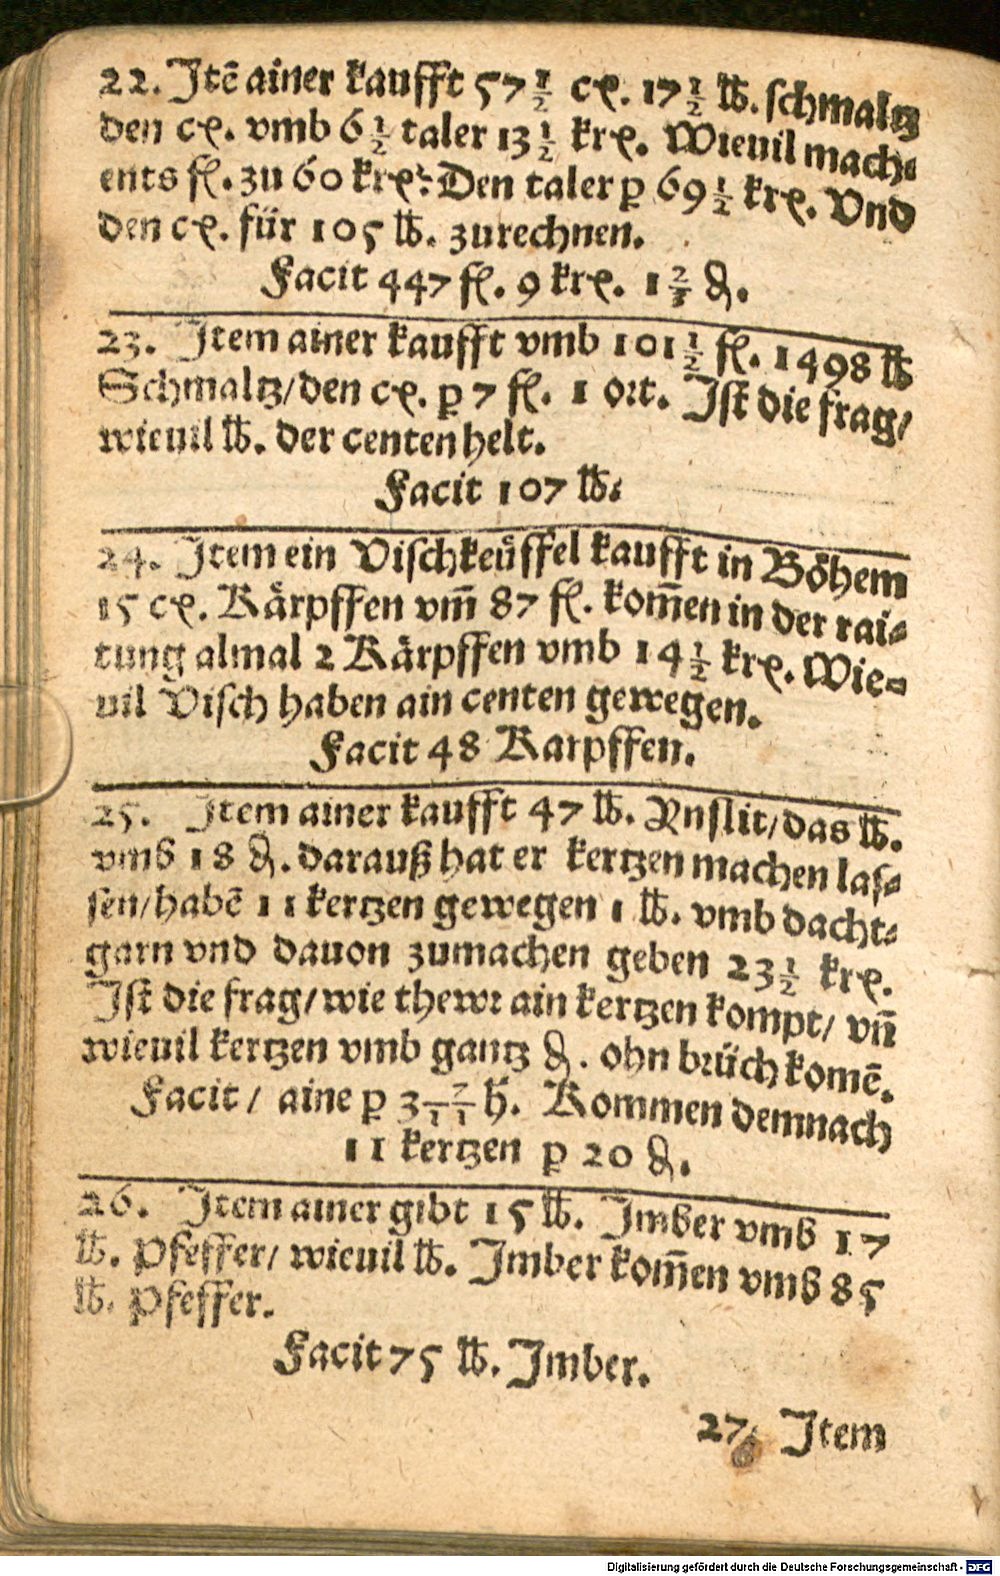 22. Jtē ainer kaufft 57 1/2 cꝫ. 17 1/2 ℔. schmaltz
den cꝫ. vmb 6 1/2 taler 13 1/2 krꝫ. Wieuil mach⸗
ents fl. zu 60 krꝫ: Den taler p 69 1/2 krꝫ. Vnd
den cꝫ. für 105 ℔. zurechnen.
Facit 447 fl. 9 krꝫ. 1 2/3 ₰.
23. Item ainer kaufft vmb 101 1/2 fl. 1498 ℔
Schmaltz/den cꝫ. p 7 fl. 1 ort. Ist die frag/
wieuil ℔. der centen helt.
Facit 107 ℔.
24. Item ein Vischkeüffel kaufft in Böhem
15 cꝫ. Kärpffen vm̄ 87 fl. kom̄en in der rai⸗
tung almal 2 Kärpffen vmb 14 1/2 krꝫ. Wie⸗
uil Visch haben ain centen gewegen.
Facit 48 Karpffen.
25. Item ainer kaufft 47 ℔. Vnslit/das ℔.
vmb 18 ₰. darauß hat er kertzen machen las⸗
sen/habē 11 kertzen gewegen 1 ℔. vmb dacht⸗
garn vnd dauon zumachen geben 23 1/2 krꝫ.
Ist die frag/wie thewr ain kertzen kompt/ vn̄
wieuil kertzen vmb gantz ₰. ohn brüch komē.
Facit/ aine p 3 7/11 h. Kommen demnach
11 kertzen p 20 ₰.
26. Item ainer gibt 15 ℔. Imber vmb 17
℔. Pfeffer/ wieuil ℔. Imber kom̄en vmb 85
℔. Pfeffer.
Facit 75 ℔. Imber.
27. Item
Digitalisierung gefördert durch die Deutsche Forschungsgemeinschaft - DFG